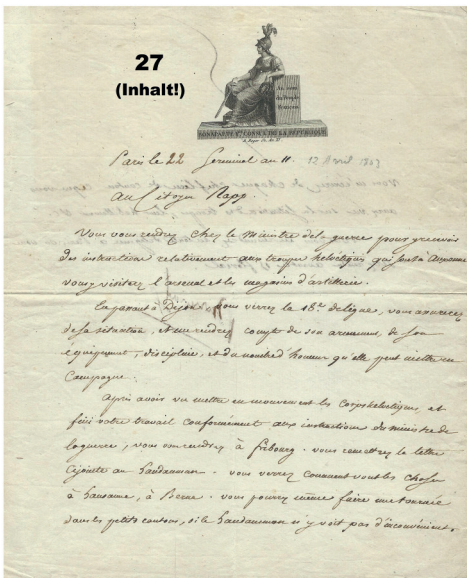 27
(Inhalt!)
Au nom
du Peuple
Français
BONAPARTE 1er CONSUL DE LA REPUBLIQUE
Paris le 22 Germinal an 11. 12 Avril 1803
Au Citoyen Rapp.
Vous vous rendrez chez le Ministre de la guerre pour y recevoir
des instructions relativement aux troupes helvetiques qui sont à Auxonne
vous y visiterez l'arsenal et les magasins d'artillerie.
En passant à Dijon, vous verrez la 18e de ligne, vous
de sa situation, et me rendrez compte de son armement, de son
équipement, discipline, et du nombre d'hommes qu'elle peut mettre en
Campagne.
Après avoir vu mettre en mouvement les Corps helvetiques, et
fini votre travail conformément aux instructions du ministre de
la guerre, vous vous rendrez à fribourg. vous remettrez la lettre
cijointe au Landamman. vous verrez comment vont les choses
à Lausanne, à Berne. vous pourrez même faire une tournée
dans les petits cantons, si le Landamman n'y voit pas d'inconvénient.